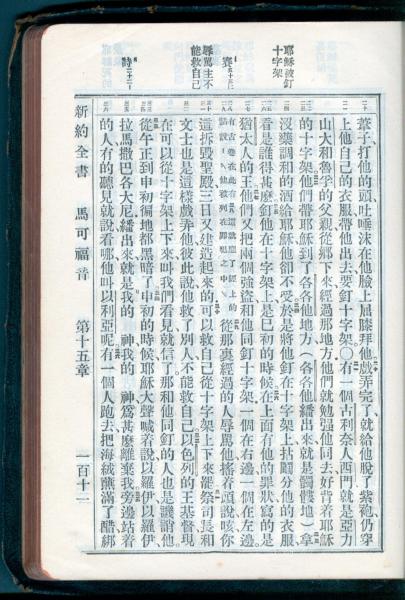 耶穌被釘
十字架
賽五十三
辱罵主不
能救自己
詩二十二
葦子打他的頭吐唾沫在他臉上屈膝拜他戲弄完了就給他脫了紫袍仍穿
上他自己的衣服帶他出去要釘十字架〇有一個古利奈人西門就是亞力
山大和魯孚的父親從鄉下來經過那地方他們就勉强他同去好背着耶穌
的十字架他們帶耶穌到了各各他地方(各各他繙出來就是髑髏地)拿
沒藥調和的酒給耶穌他卻不受於是將他釘在十字架上拈鬮分他的衣服
看是誰得甚麼釘他在十字架上是巳初的時候在上面有他的罪狀寫的是
猶太人的王他們又把兩個強盜和他同釘十字架一個在右邊一個在左邊
有古卷在此有廿八節這就應了經上的話說他被列在罪犯之中從那裏經過的人辱罵他搖着頭說咳你
這拆毀聖殿三日又建造起來的可以救自己從十字架上下來罷祭司長和
文士也是這樣戲弄他彼此說他救了別人不能救自己以色列的王基督現
在可以從十字架上下來叫我們看見就信了那和他同釘的人也是譏誚他
從午正到申初徧地都黑暗了申初的時候耶穌大聲喊着說以羅伊以羅伊
拉馬撒巴各大尼繙出來就是我的 神我的 神爲甚麼離棄我旁邊站着
的人有的聽見就說看哪他叫以利亞呢有一個人跑去把海絨蘸滿了醋綁
新約全書 馬可福音 第十五章 一百十二